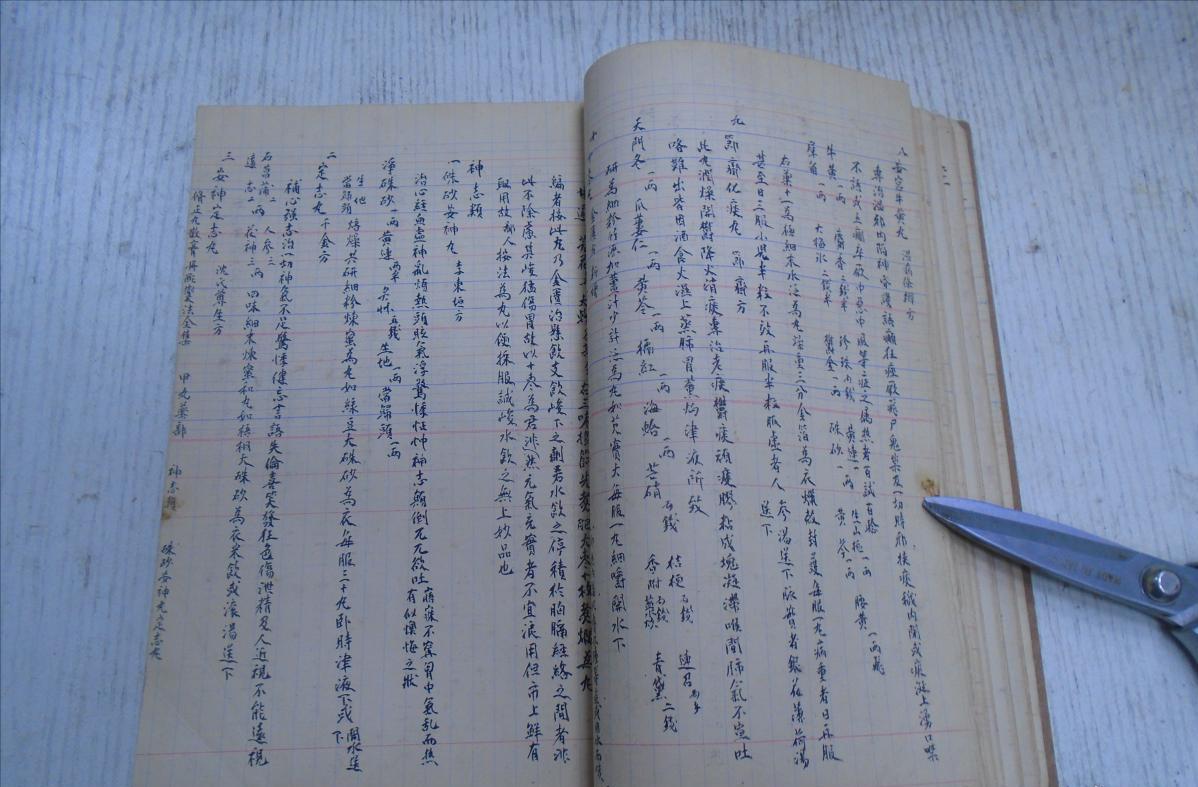 八 安宮牛黃丸 溫病條辨方
專治溫邪內陷神昏譫語癲狂痙厥癇尸鬼祟及一切時邪挾痰穢內閉或痰涎上湧口噤
不語或五癇卒厥中惡中風等症之偏熱者自試有驗
牛黃一兩 麝香二錢半 珍珠五錢 黃連一兩 生山梔一兩 腰黃一兩
犀角一兩 大梅冰二錢半 鬱金一兩 硃砂一兩 黃芩一兩
右藥十一為極細末水泛為丸潔重三分金箔為衣蠟殼封護每服一丸病重者日再服
甚至日三服小兒半粒不效再服半粒脈虛者人參湯送下脈實者銀花薄荷湯
送下
九 節齋化痰丸 節齋方
此丸潤燥開鬱降火消痰專治老痰鬱痰頑痰膠粘成塊凝滯喉間肺氣不宣吐
咯難出皆因酒食火濕上蒸肺胃薰灼津液所致
天門冬一兩 瓜蔞仁一兩 黃芩一兩 橘紅一兩 海蛤一兩 芒硝五錢 桔梗五錢 連召五錢
香附五錢 青黛二錢
研為細粉竹瀝加薑汁少許泛為丸如芡實大每服一丸細嚼開水下
編者按此丸乃金匱治懸飲支飲峻下之劑若水飲之停積於胸膈經絡之間者非
此不除慮其峻猛傷胃故以十棗為君然元氣充實者不宜浪用但市上鮮有
誤用故鄙人按法為丸以便採服誠峻水飲之無上妙品也
神志類
一 硃砂安神丸 李東垣方
治心經血虛神亂煩熱頭眩氣浮驚悸怔忡神志顛倒兀兀欲吐寤寐不寧胃中氣亂而熱
有似懊憹之狀
淨硃砂一兩 黃連兩半 炙草五錢 生地一兩 當歸頭一兩
生地當歸頭焙燥共研細粉煉蜜為丸如綠豆大硃砂為衣每服三十丸臥時津液下或開水送
下
二 定志丸 千金方
補心強志治一切神氣不足驚悸健忘言語失倫喜笑發狂色傷泄精及人近視不能遠視
石菖蒲二 人參三
遠志二兩 茯神三兩 四味細末煉蜜和丸如梧桐大硃砂為衣米飲或滾湯送下
三 安神定志丸 沈氏尊生方
修正丸散膏丹 甲丸藥部 神志類 硃砂安神丸定志丸